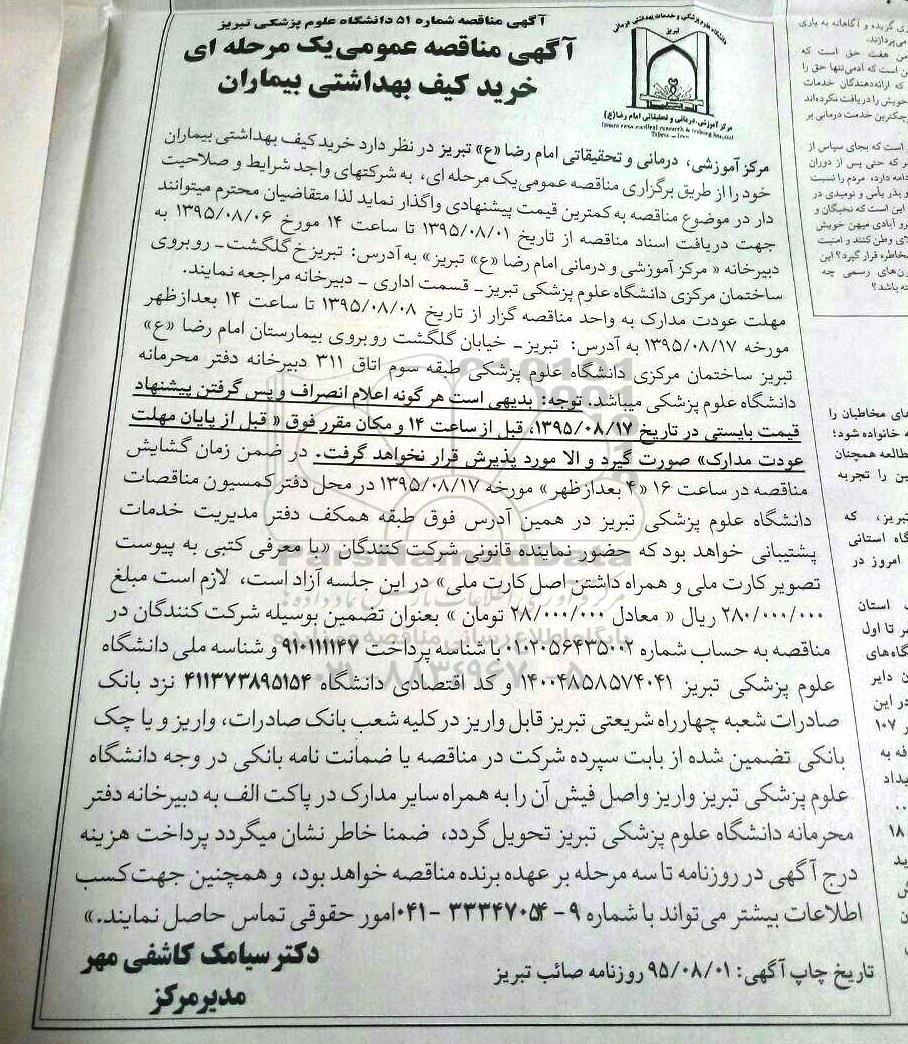 آگهی مناقصه شماره ۵۱ دانشگاه علوم پزشکی تبریز
آگهی مناقصه عمومی یک مرحله ای
خرید کیف بهداشتی بیماران
دانشگاه علوم پزشکی و خدمات بهداشتی درمانی
تبریز
مرکز آموزشی، درمانی و تحقیقاتی امام رضا(ع)
مرکز آموزشی، درمانی و تحقیقاتی امام رضا «ع» تبریز در نظر دارد خرید کیف بهداشتی بیماران
خود را از طریق برگزاری مناقصه عمومی یک مرحله ای، به شرکتهای واجد شرایط و صلاحیت
دار در موضوع مناقصه به کمترین قیمت پیشنهادی واگذار نماید لذا متقاضیان محترم میتوانند
جهت دریافت اسناد مناقصه از تاریخ ۱۳۹۵/۰۸/۰۱ تا ساعت ۱۴ مورخ ۱۳۹۵/۰۸/۰۶ به
دبیرخانه « مرکز آموزشی و درمانی امام رضا «ع» تبریز» به آدرس: تبریز خ گلگشت- روبروی
ساختمان مرکزی دانشگاه علوم پزشکی تبریز- قسمت اداری - دبیرخانه مراجعه نمایند.
مهلت عودت مدارک به واحد مناقصه گزار از تاریخ ۱۳۹۵/۰۸/۰۸ تا ساعت ۱۴ بعدازظهر
مورخه ۱۳۹۵/۰۸/۱۷ به آدرس: تبریز- خیابان گلگشت روبروی بیمارستان امام رضا «ع»
تبریز ساختمان مرکزی دانشگاه علوم پزشکی طبقه سوم اتاق ۳۱۱ دبیرخانه دفتر محرمانه
دانشگاه علوم پزشکی میباشد. توجه: بدیهی است هر گونه اعلام انصراف و پس گرفتن پیشنهاد
قیمت بایستی در تاریخ ۱۳۹۵/۰۸/۱۷، قبل از ساعت ۱۴ و مکان مقرر فوق « قبل از پایان مهلت
عودت مدارک» صورت گیرد و الا مورد پذیرش قرار نخواهد گرفت. در ضمن زمان گشایش
مناقصه در ساعت ۱۶ «۴ بعدازظهر» مورخه ۱۳۹۵/۰۸/۱۷ در محل دفتر کمسیون مناقصات
دانشگاه علوم پزشکی تبریز در همین آدرس فوق طبقه همکف دفتر مدیریت خدمات
پشتیبانی خواهد بود که حضور نماینده قانونی شرکت کنندگان «با معرفی کتبی به پیوست
تصویر کارت ملی و همراه داشتن اصل کارت ملی» در این جلسه آزاد است، لازم است مبلغ
۲۸۰/۰۰۰/۰۰۰ ریال « معادل ۲۸/۰۰۰/۰۰۰ تومان » بعنوان تضمین بوسیله شرکت کنندگان در
مناقصه به حساب شماره ۰۱۰۲۰۵۶۴۳۵۰۰۲ با شناسه پرداخت ۹۱۰۱۱۱۱۴۷ و شناسه ملی دانشگاه
علوم پزشکی تبریز ۱۴۰۰۴۸۵۸۵۷۴۰۴۱ و کد اقتصادی دانشگاه ۴۱۱۳۷۳۸۹۵۱۵۴ نزد بانک
صادرات شعبه چهارراه شریعتی تبریز قابل واریز در کلیه شعب بانک صادرات، واریز و یا چک
بانکی تضمین شده از بابت سپرده شرکت در مناقصه یا ضمانت نامه بانکی در وجه دانشگاه
علوم پزشکی تبریز واریز واصل فیش آن را به همراه سایر مدارک در پاکت الف به دبیرخانه دفتر
محرمانه دانشگاه علوم پزشکی تبریز تحویل گردد، ضمنا خاطر نشان میگردد پرداخت هزینه
درج آگهی در روزنامه تا سه مرحله بر عهده برنده مناقصه خواهد بود، و همچنین جهت کسب
اطلاعات بیشتر می تواند با شماره ۹- ۳۳۳۴۷۰۵۴ -۰۴۱ امور حقوقی تماس حاصل نمایند.»
تاریخ چاپ آگهی: ۹۵/۰۸/۰۱ روزنامه صائب تبریز
دکتر سیامک کاشفی مهر
مدیر مرکز
ParsNamadData
پایگاه اطلاع رسانی مناقصه و مزایده
۰۲۱-۸۸۳۴۹۶۷۰-۵